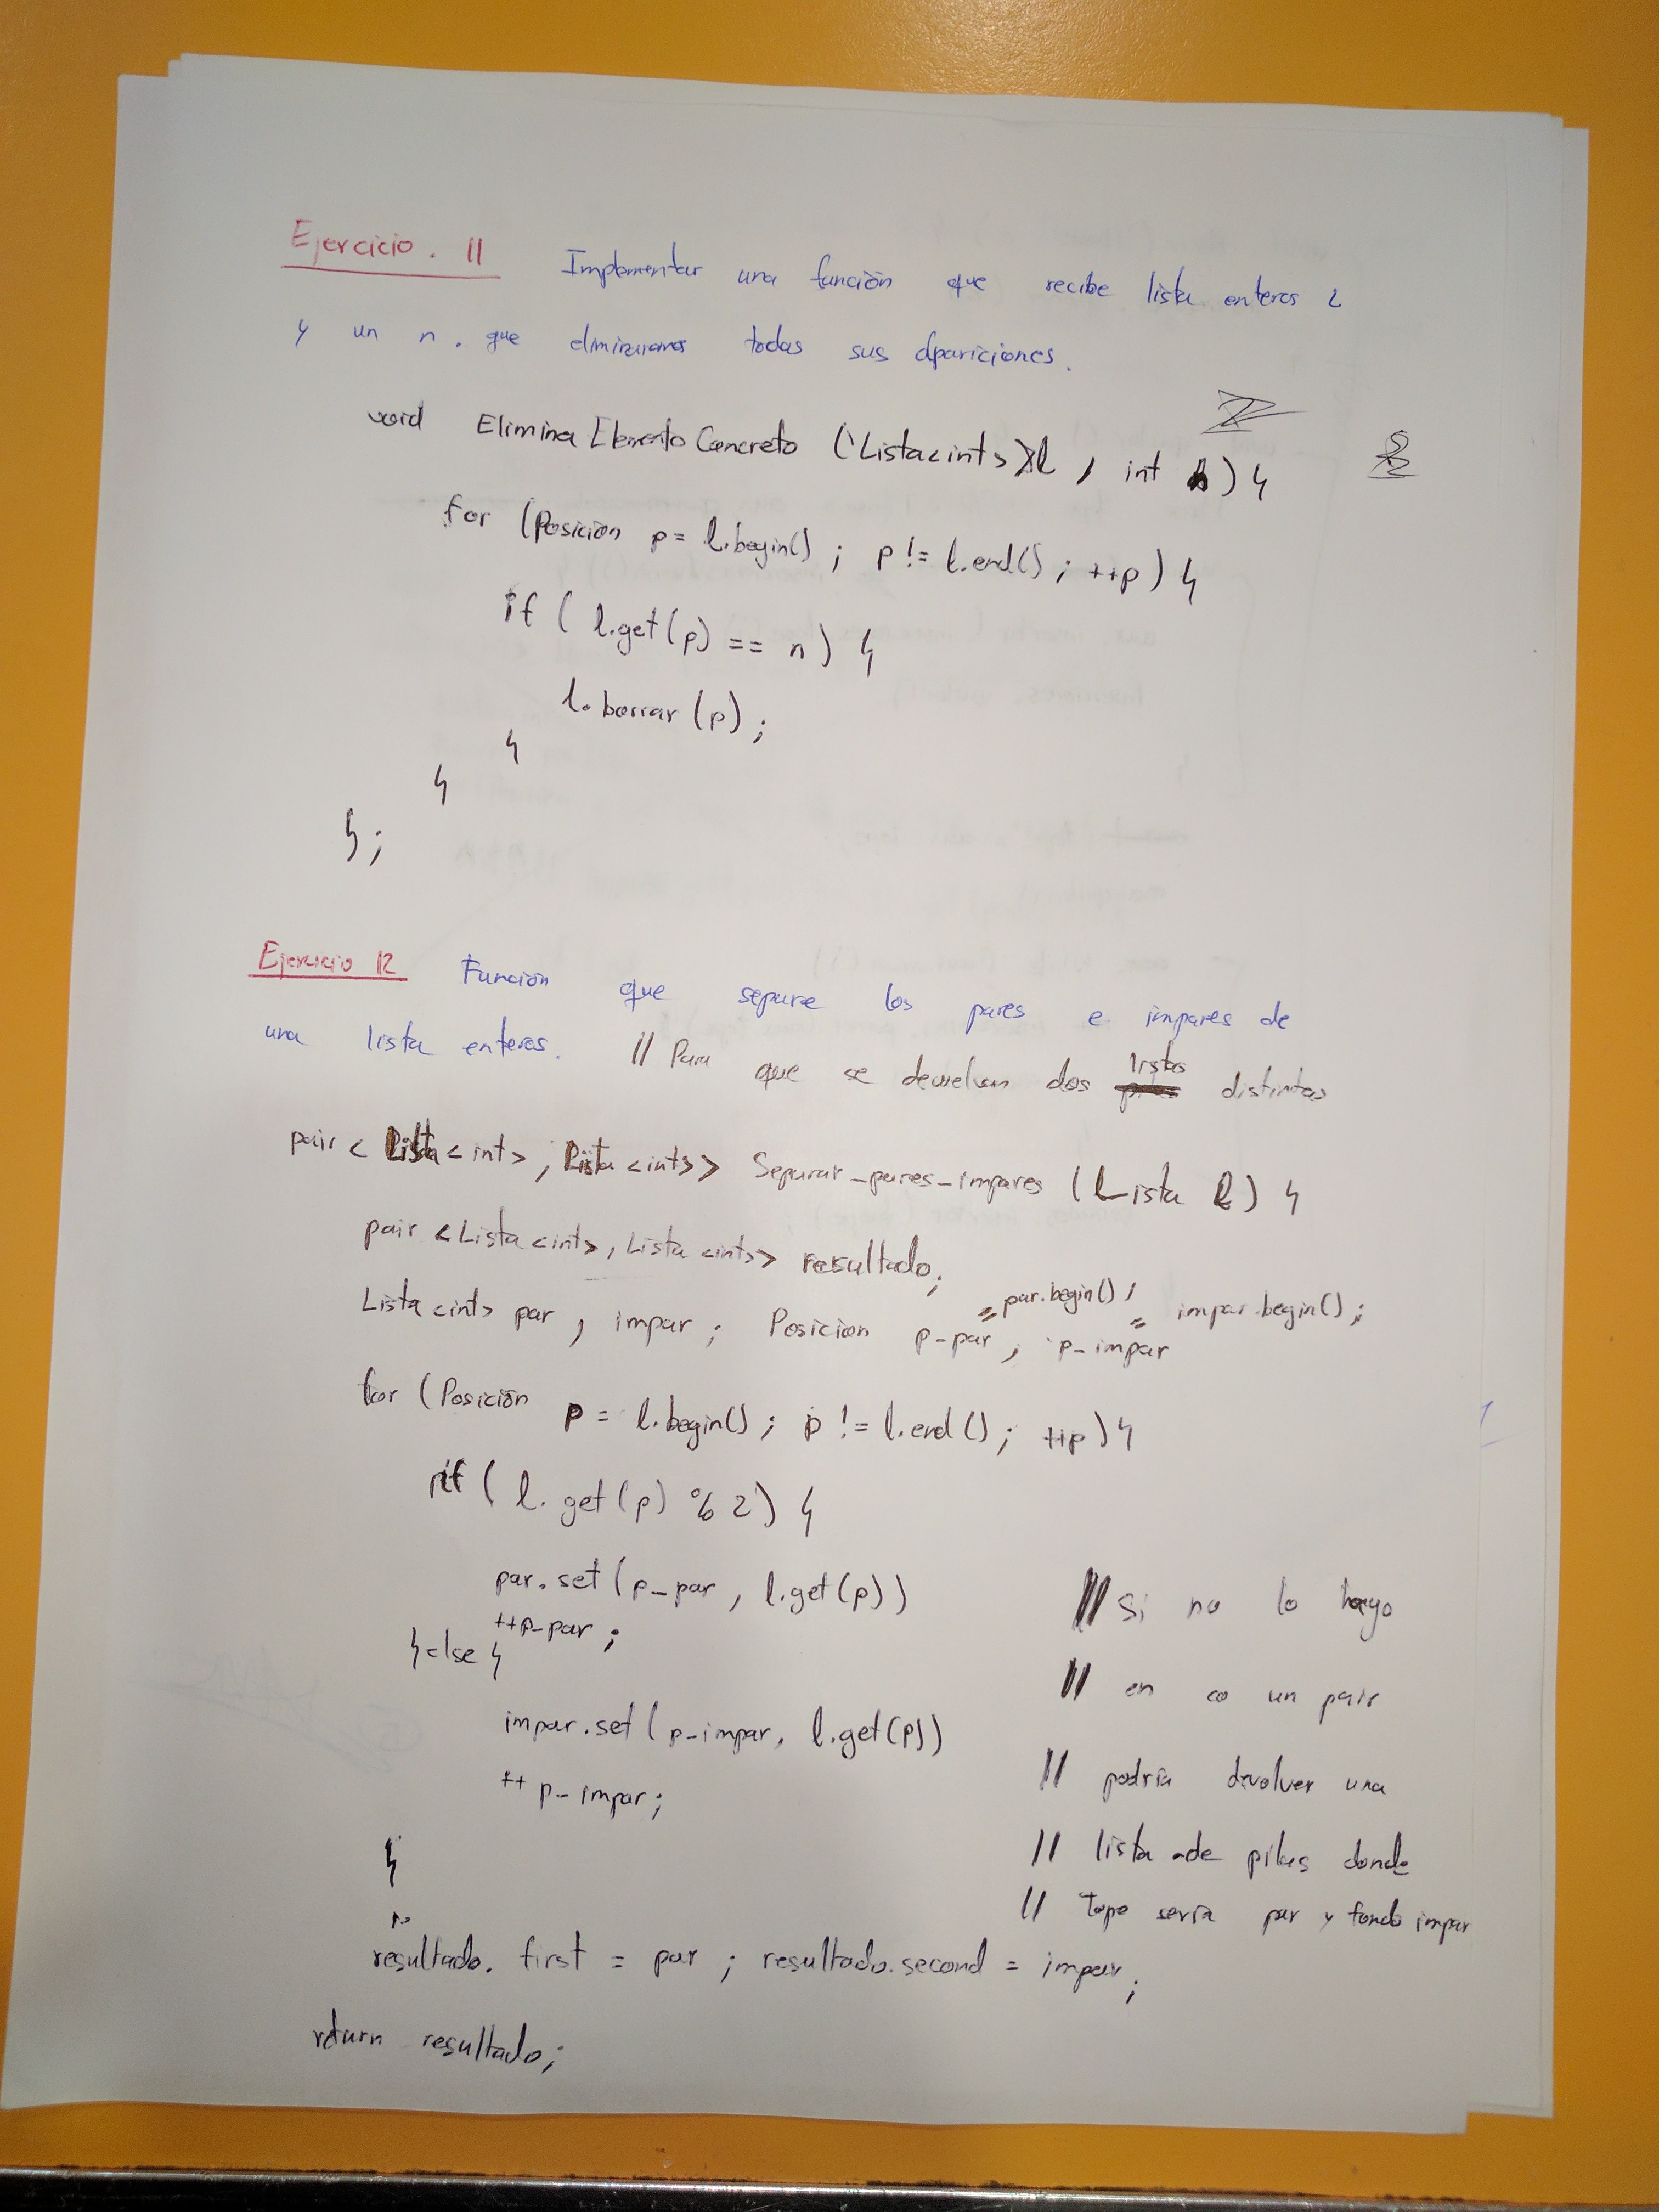 Ejercicio. 11 Implementar una función que recibe lista enteros
y un n. que eliminaremos todas sus apariciones.
void Elimina Elemento Concreto (Lista<int> l, int n) {
for (Posición p = l.begin() ; p != l.end() ; ++p) {
if ( l.get(p) == n) {
l.borrar (p) ;
}
}
};
Ejercicio 12 Función que separe los pares e impares de
una lista enteros. // Para que se devuelvan dos listas distintas
pair < Lista<int>, Lista<int>> Separar_pares_impares (Lista l) {
pair <Lista<int>, Lista<int>> resultado;
Lista<int> par , impar ; Posicion p_par = par.begin() , p_impar = impar.begin();
for (Posición p = l.begin() ; p != l.end () ; ++p) {
if ( l. get (p) % 2) {
par. set (p_par , l.get(p))
++p_par ;
} else {
impar.set ( p_impar, l.get(p))
++ p_impar;
}
resultado. first = par ; resultado.second = impar ;
return resultado;
// Si no lo hago
// en un pair
// podría devolver una
// lista de pilas donde
// Tope sería par y fondo impar